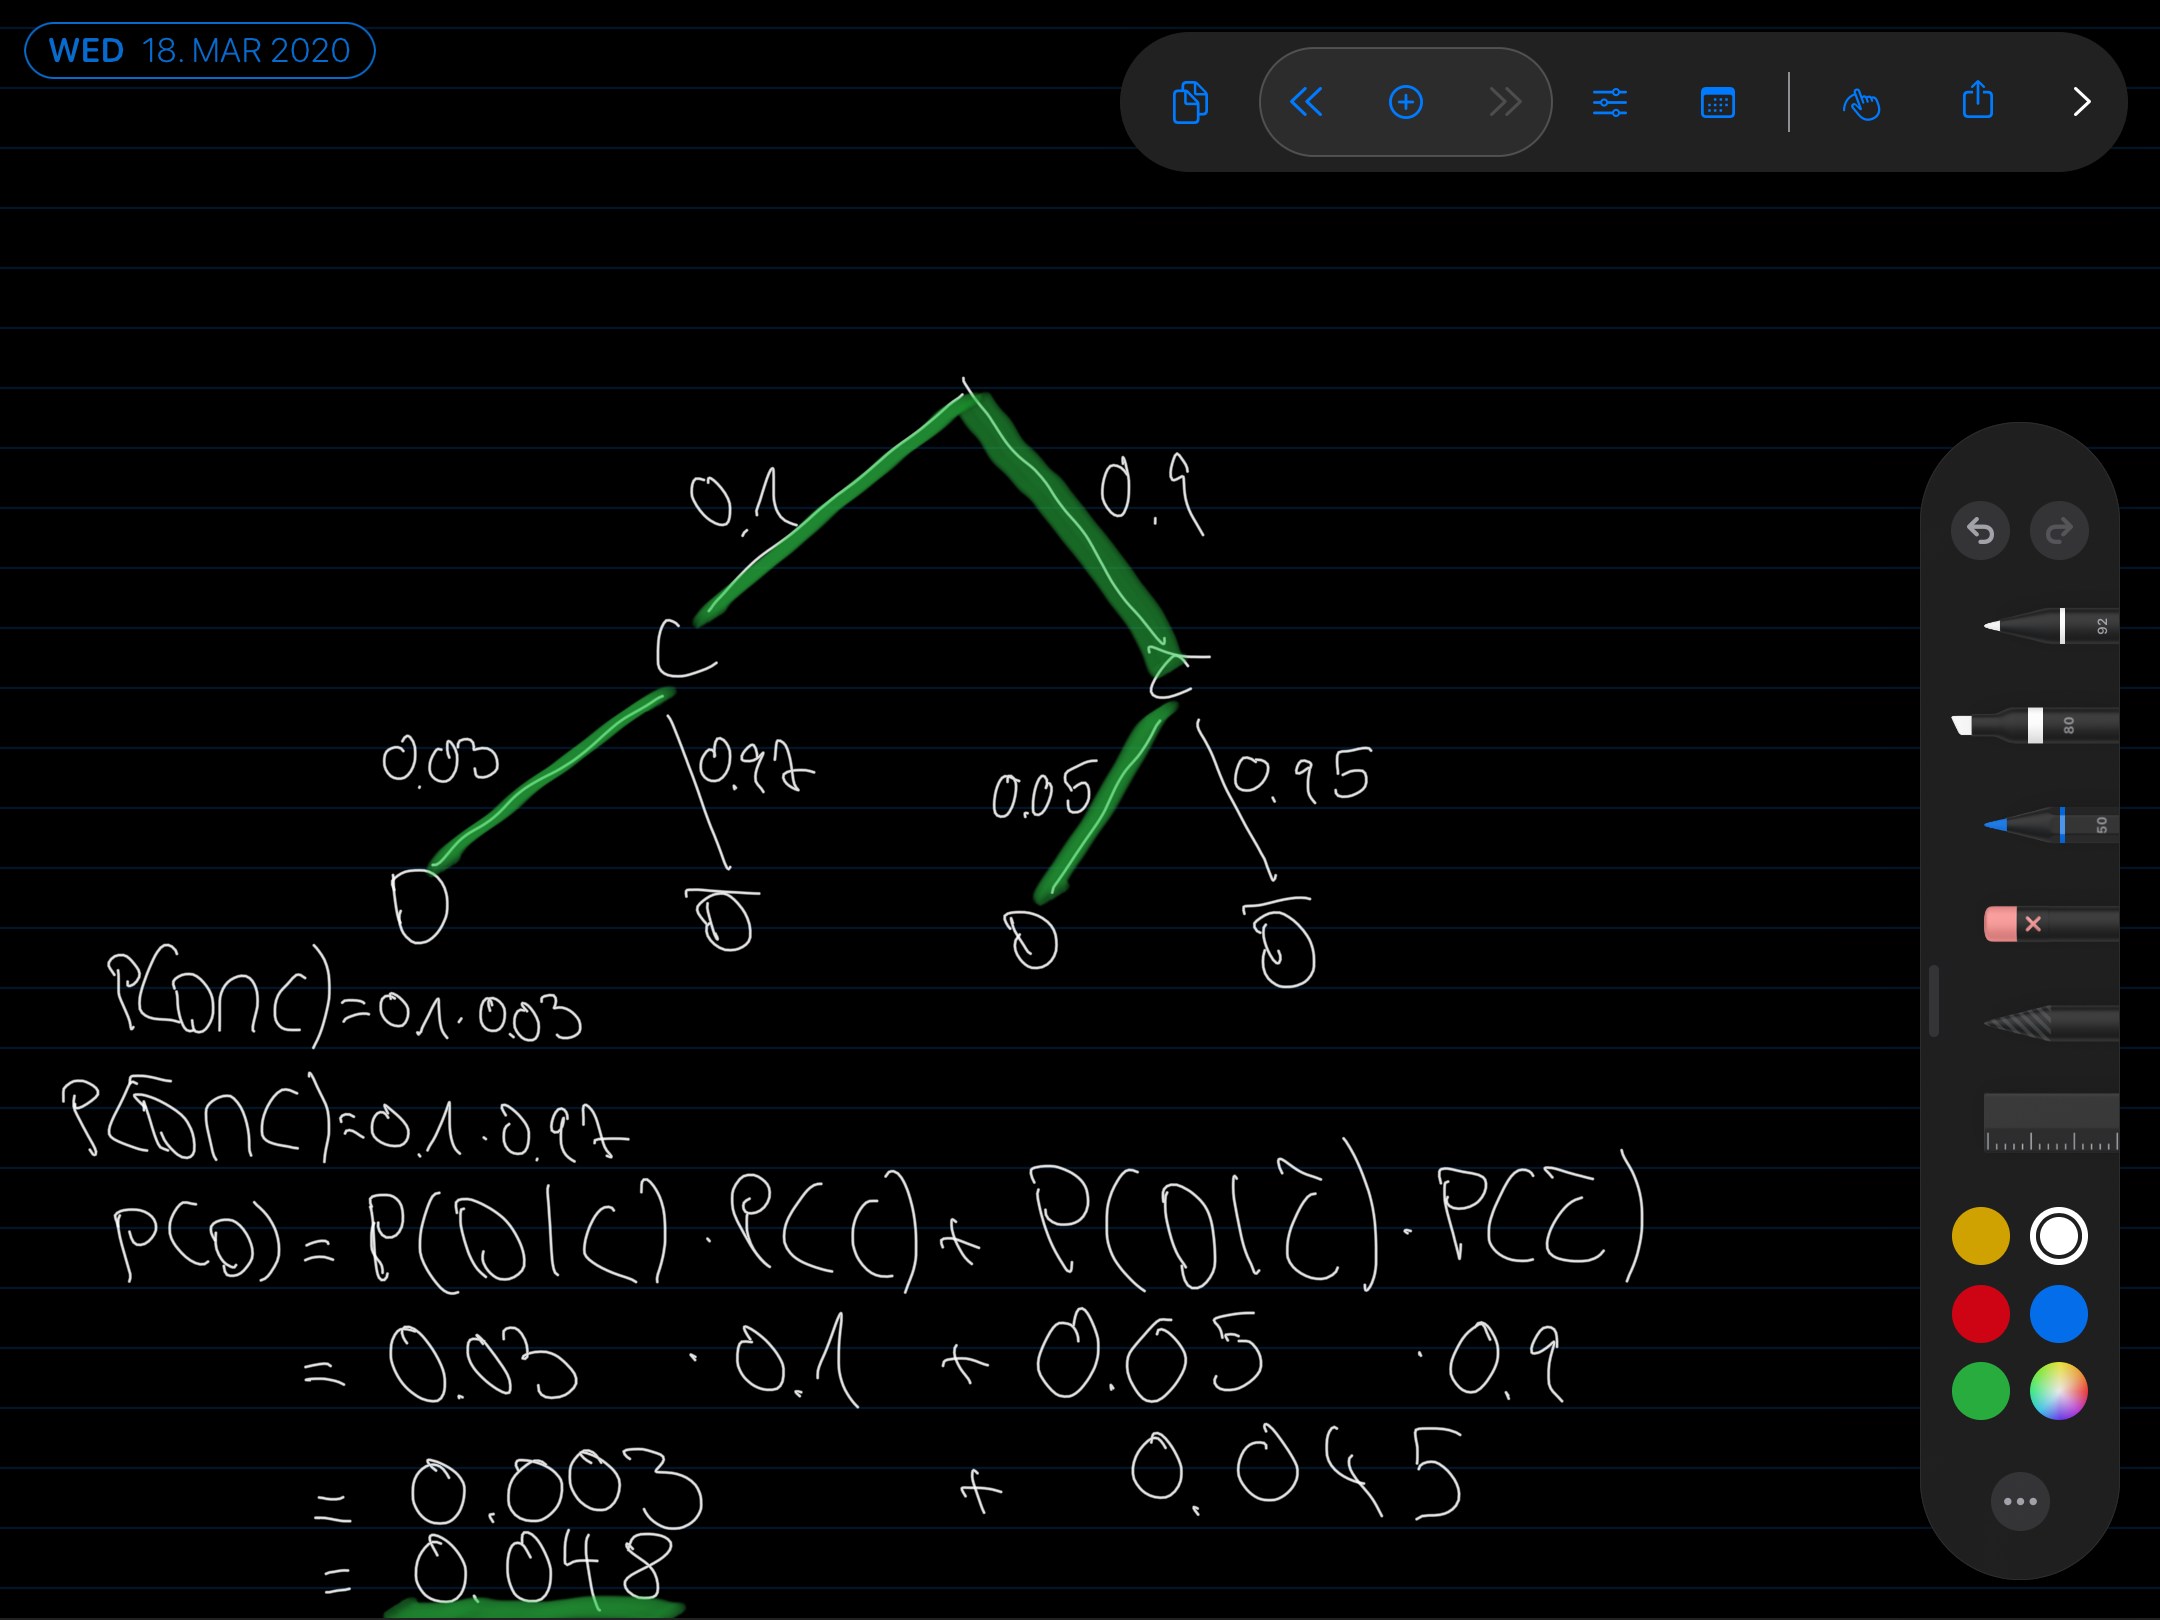 WED 18. MAR 2020
0.1 0.9
C C̅
92
80
0.03 0.97 0.05 0.95
50
D D̅ D D̅
P(D∩C)=0.1·0.03
P(D̅∩C)=0.1·0.97
P(D) = P(D|C)·P(C) + P(D|C̅)·P(C̅)
= 0.03 · 0.1 + 0.05 · 0.9
= 0.003 + 0.045
= 0.048